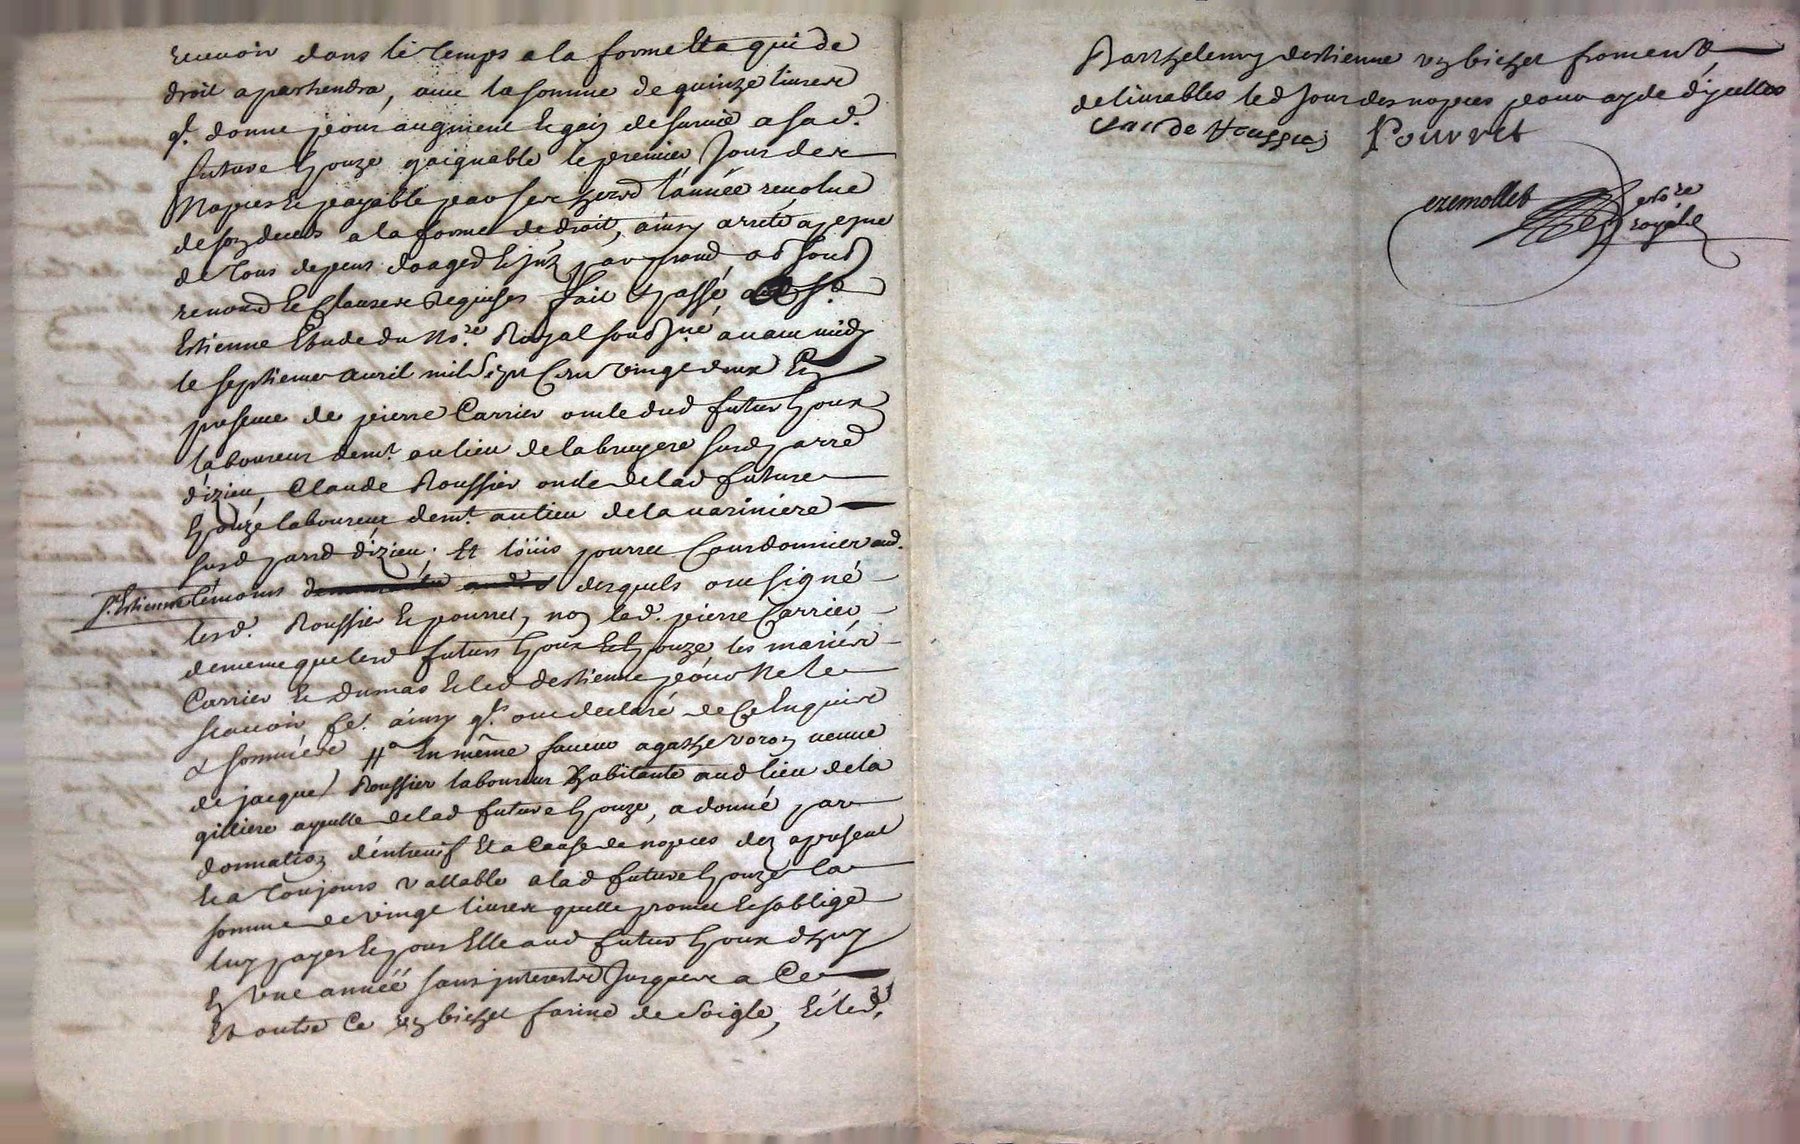 receuoir dans le temps a la forme Et a qui de
droit apartiendra, auec la somme de quinze liures
ql. donne pour augment Et gaiz de suruie a sad.
future Epouze gaignable le premier Jour des
Nopces Et payable par ses hers l'année reuolue
de soy deces a la forme de droit, ainsy arreté a peyne
de tous depens
renond Et Clauses Requises fait Et passé, aud St.
Estienne Etude du No.re Royal soussné, auant midy
le septieme auril mil sept Cent vingt deux En
presence de pierre Carrier oncle dud futur Epoux
laboureur demt. au lieu de la bruyere susd parre
d'izieu, Claude Roussier oncle de lad future
Epouze laboureur demt. au lieu de la variniere
susd parre d'izieu; Et loüis pourret Courdonnier aud.
St. Estienne témoins desquels ont signé
lesd. Roussier Et pourret, non led. pierre Carrier
de meme que lesd futurs Epoux Et Epouze, les mariés
Carrier Et Dumas Et led destienne pour Ne le
scauoir fe. ainsy qls. ont declaré de Ce Enquis
& sommés // En même faueur agathe voron veuue
de jacques Roussier laboureur habitante aud lieu de la
gilliere ayeulle de lad future Epouze, a donné par
donnation d'entreuif Et a Cause de nopces dez a present
Et a toujours vallable a lad future Epouze la
somme de vingt liures quelle promet Et s'oblige
luy payer Et pour Elle aud futur Epoux d'huy
En vne année sans interests Jusques a Ce
Et outre Ce vn bichet farine de Soigle, Et led.
Barthelemy destienne vn bichet froment,
deliurables led Jour des nopces pour ayde d'ycelles
claude Roussier Pourret
ezemollet No.re
royal